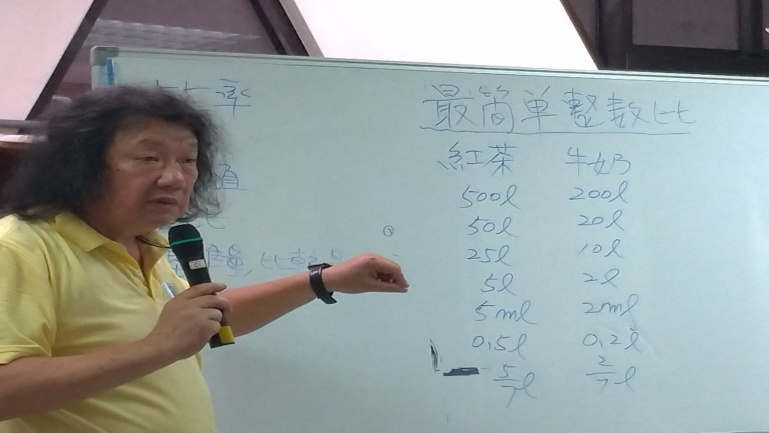 比率
最简单整数比
紅茶 牛奶
值
500l 200l
50l 20l
25l 10l
5l 2l
5ml 2ml
0.5l 0.2l
5/7l 2/7l